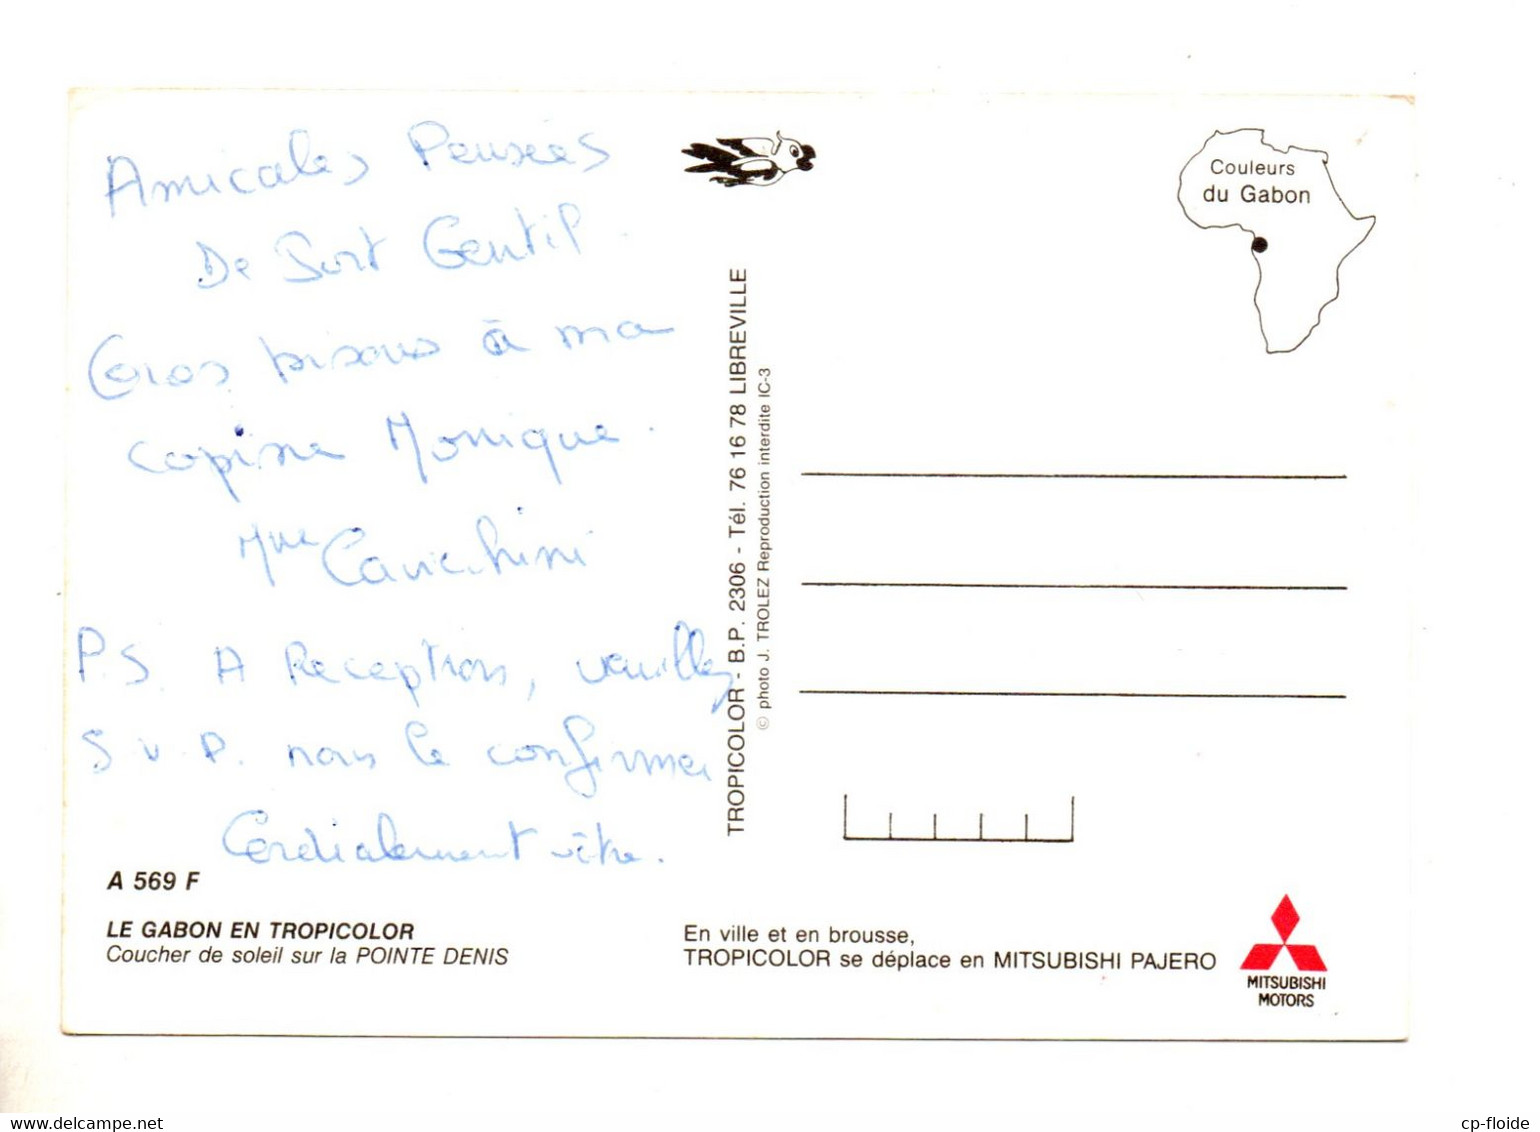 Amicales Pensées
De Port Gentil.
Gros bisous à ma
copine Monique.
Mme
P.S. A Reception, veuillez
S.V.P. nous le confirmer
Cordialement vôtre.
A 569 F
LE GABON EN TROPICOLOR
Coucher de soleil sur la POINTE DENIS
TROPICOLOR - B.P. 2306 - Tél. 76 16 78 LIBREVILLE
© photo J. TROLEZ Reproduction interdite IC-3
Couleurs
du Gabon
En ville et en brousse,
TROPICOLOR se déplace en MITSUBISHI PAJERO
MITSUBISHI
MOTORS
cp-floide